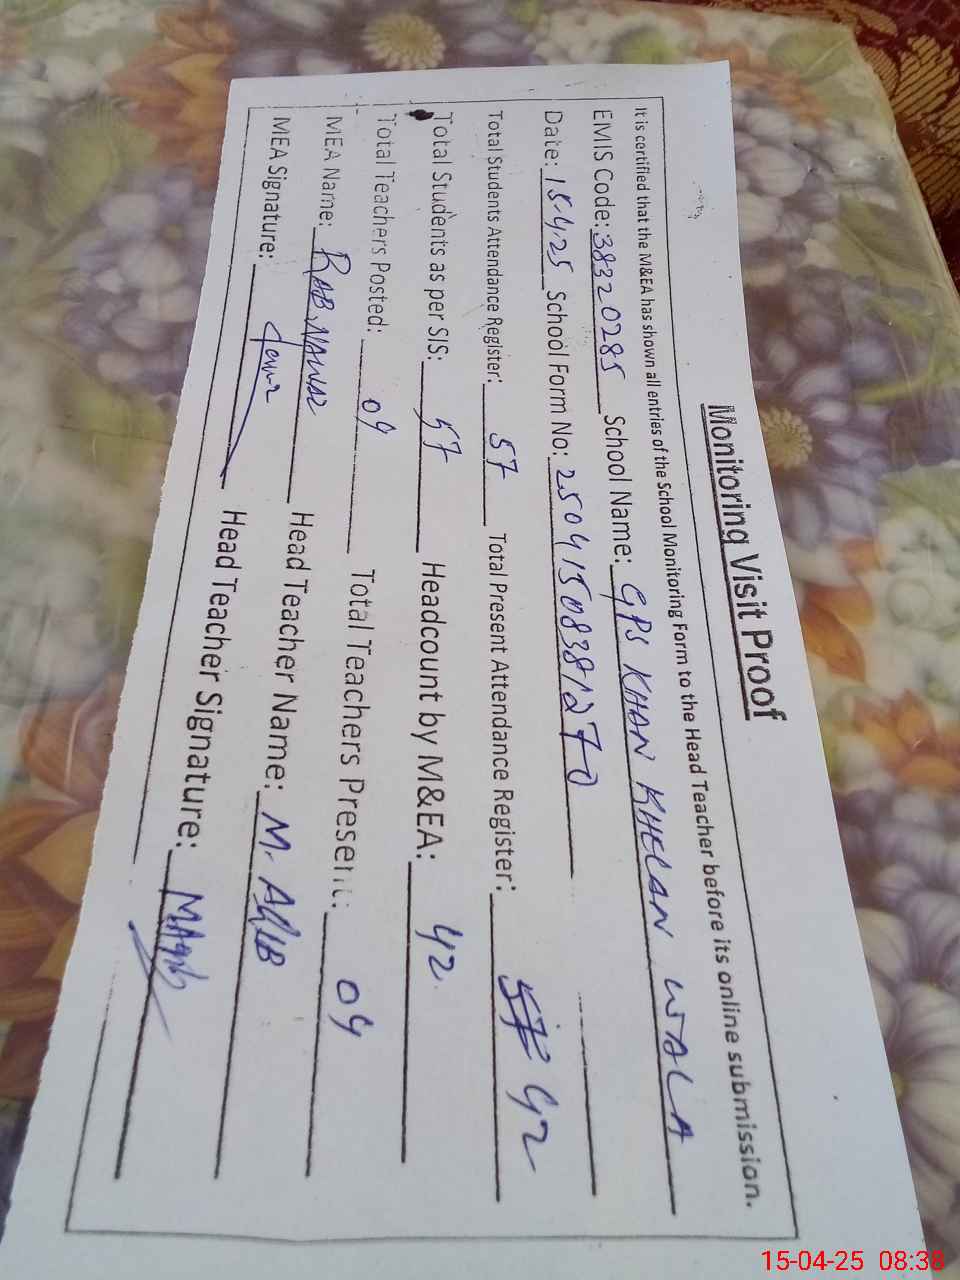 Monitoring Visit Proof
It is certified that the M&EA has shown all entries of the School Monitoring Form to the Head Teacher before its online submission.
EMIS Code: 38320285 School Name: GPS KHAN KHELAN WALA
Date: 15.4.25 School Form No: 250415083812 70
Total Students Attendance Register: 57 Total Present Attendance Register: 57 42
Total Students as per SIS: 57 Headcount by M&EA: 42
Total Teachers Posted: 04 Total Teachers Present: 04
MEA Name: RAB NAWAZ Head Teacher Name: M. AQIB
MEA Signature: Head Teacher Signature: MAqib
15-04-25 08:38